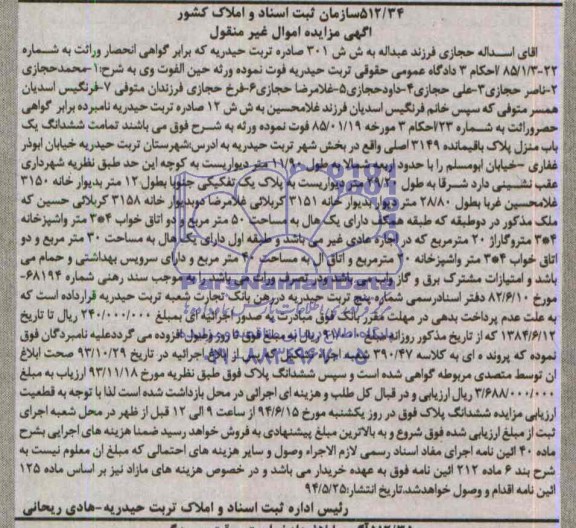 ۵۱۲/۳۴سازمان ثبت اسناد و املاک کشور
آگهی مزایده اموال غیر منقول
اقای اسداله حجازی فرزند عبداله به ش ش ۳۰۱ صادره تربت حیدریه که برابر گواهی انحصار وراثت به شماره
۸۵/۱/۳-۲۲ /احکام ۳ دادگاه عمومی حقوقی تربت حیدریه فوت نموده ورثه حین الفوت وی به شرح:۱-محمدحجازی
۲-ناصر حجازی۳-علی حجازی۴-داودحجازی۵-غلامرضا حجازی۶-فرخ حجازی فرزندان متوفی ۷-فرنگیس اسدیان
همسر متوفی که سپس خانم فرنگیس اسدیان فرزند غلامحسین به ش ش ۱۲ صادره تربت حیدریه نامبرده برابر گواهی
حصروراثت به شماره ۲۳/احکام ۳ مورخه ۸۵/۰۱/۱۹ فوت نموده ورثه به شرح فوق می باشند تمامت ششدانگ یک
باب منزل پلاک باقیمانده ۳۱۴۹ اصلی واقع در بخش شهر تربت حیدریه به ادرس:شهرستان تربت حیدریه خیابان ابوذر
غفاری –خیابان ابومسلم را با حدود اربعه:شمالا به طول ۱۱/۹۰ متر دیواریست به کوچه این حد طبق نظریه شهرداری
عقب نشینی دارد شرقا به طول ۲۹/۲۰ متر دیواریست به پلاک یک تفکیکی جنوبا بطول ۱۲ متر بدیوار خانه ۳۱۵۰
غلامحسین غربا بطول ۲۸/۸۰ متر دیوار بدیوار خانه ۳۱۵۱ کربلائی غلامرضا دوبدیوار خانه ۳۱۵۸ کربلائی حسین که
ملک مذکور در دوطبقه که طبقه همکف دارای یک هال به مساحت ۵۰ متر مربع و دو اتاق خواب ۴*۳ متر واشپزخانه
۴*۳ متروگاراژ ۲۰ مترمربع که در اجاره عادی غیر می باشد و طبقه اول دارای یک هال به مساحت ۳۰ متر مربع و دو
اتاق خواب ۴*۳ متر واشپزخانه ۲۰ مترمربع و اتاق ال به مساحت ۴۰ متر مربع و دارای سرویس بهداشتی و حمام می
باشد و امتیازات مشترک برق و گاز واب می باشد در تصرف وراث می باشد را به موجب سند رهنی شماره ۶۸۱۹۴-
مورخ ۸۲/۶/۱۰ دفتر اسنادرسمی شماره پنج تربت حیدریه دررهن بانک تجارت شعبه تربت حیدریه قرارداده است که
به علت عدم پرداخت بدهی در مهلت مقرر بانک فوق مبادرت به صدور اجرائیه ای بمبلغ ۲۴۰/۰۰۰/۰۰۰ ریال تا تاریخ
۱۳۸۴/۶/۱۲ که از تاریخ مذکور روزانه مبلغ ریال به مبلغ فوق تا روز وصول افزوده می گرددعلیه نامبردگان فوق
نموده که پرونده ای به کلاسه ۳۹۰/۴۷ شعبه اجرا تشکیل که پس از ابلاغ اجرائیه در تاریخ ۹۳/۱۰/۲۹ صحت ابلاغ
ان توسط متصدی مربوطه گواهی شده است و سپس ششدانگ پلاک فوق طبق نظریه مورخ ۹۳/۱۱/۱۸ ارزیاب به مبلغ
۳/۶۸۸/۰۰۰/۰۰۰ ریال ارزیابی و در قبال کل طلب و هزینه ای اجرائی در محل بازداشت شده است لذا با توجه به قطعیت
ارزیابی مزایده ششدانگ پلاک فوق در روز یکشنبه مورخ ۹۴/۶/۱۵ از ساعت ۹ الی ۱۲ قبل از ظهر در محل شعبه اجرای
ثبت از مبلغ ارزیابی شده فوق شروع و به بالاترین مبلغ پیشنهادی به فروش خواهد رسید ضمنا هزینه های اجرایی بشرح
ماده ۴۰ ائین نامه اجرای مفاد اسناد رسمی لازم الاجراء وصول و سایر هزینه های احتمالی که مبلغ ان معلوم نیست به
شرح بند ۶ ماده ۲۱۲ ائین نامه فوق به عهده خریدار می باشد و در خصوص هزینه های مازاد نیز بر اساس ماده ۱۲۵
ائین نامه اقدام و وصول خواهدشد.تاریخ انتشار:۹۴/۵/۲۵
رئیس اداره ثبت اسناد و املاک تربت حیدریه-هادی ریحانی
ParsNamadData